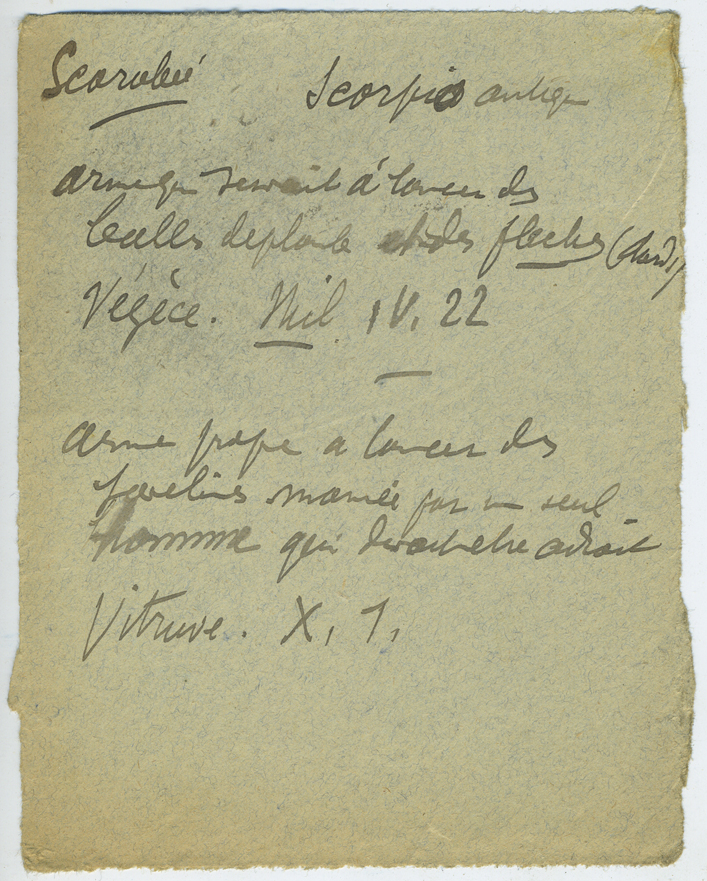 Scarabée Scorpio antique
arme qui servait à lancer des
balles de plomb et des fleches (dards)
Végèce. Mil IV, 22
arme propre a lancer des
javelines maniée par un seul
homme qui devait etre adroit
Vitruve. X, 1,